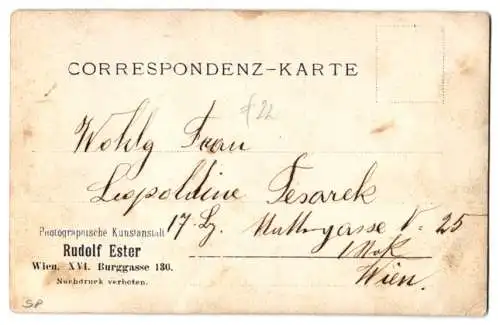 CORRESPONDENZ-KARTE
Wohlg Frau
Leopoldine Tesarek
17. Bz. gasse N= 25
Wien.
Photographische Kunstanstalt
Rudolf Ester
Wien, XVI. Burggasse 130.
Nachdruck verboten.